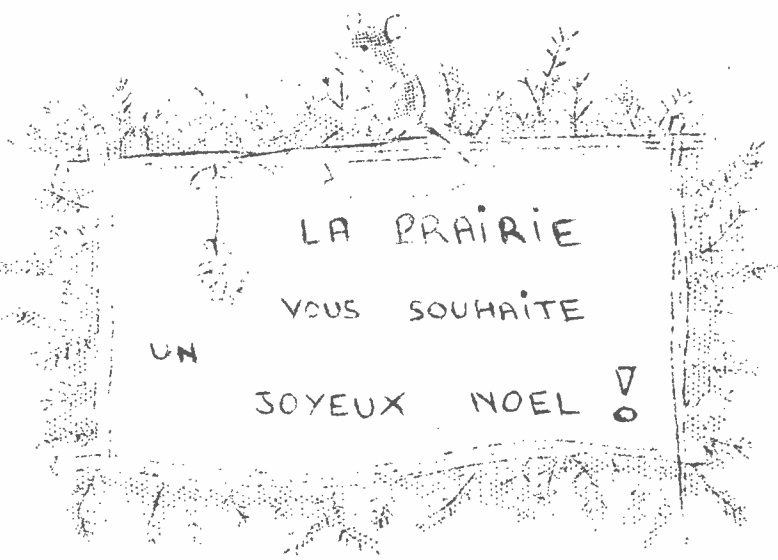 LA PRAIRIE
VOUS SOUHAITE
UN
JOYEUX NOEL !